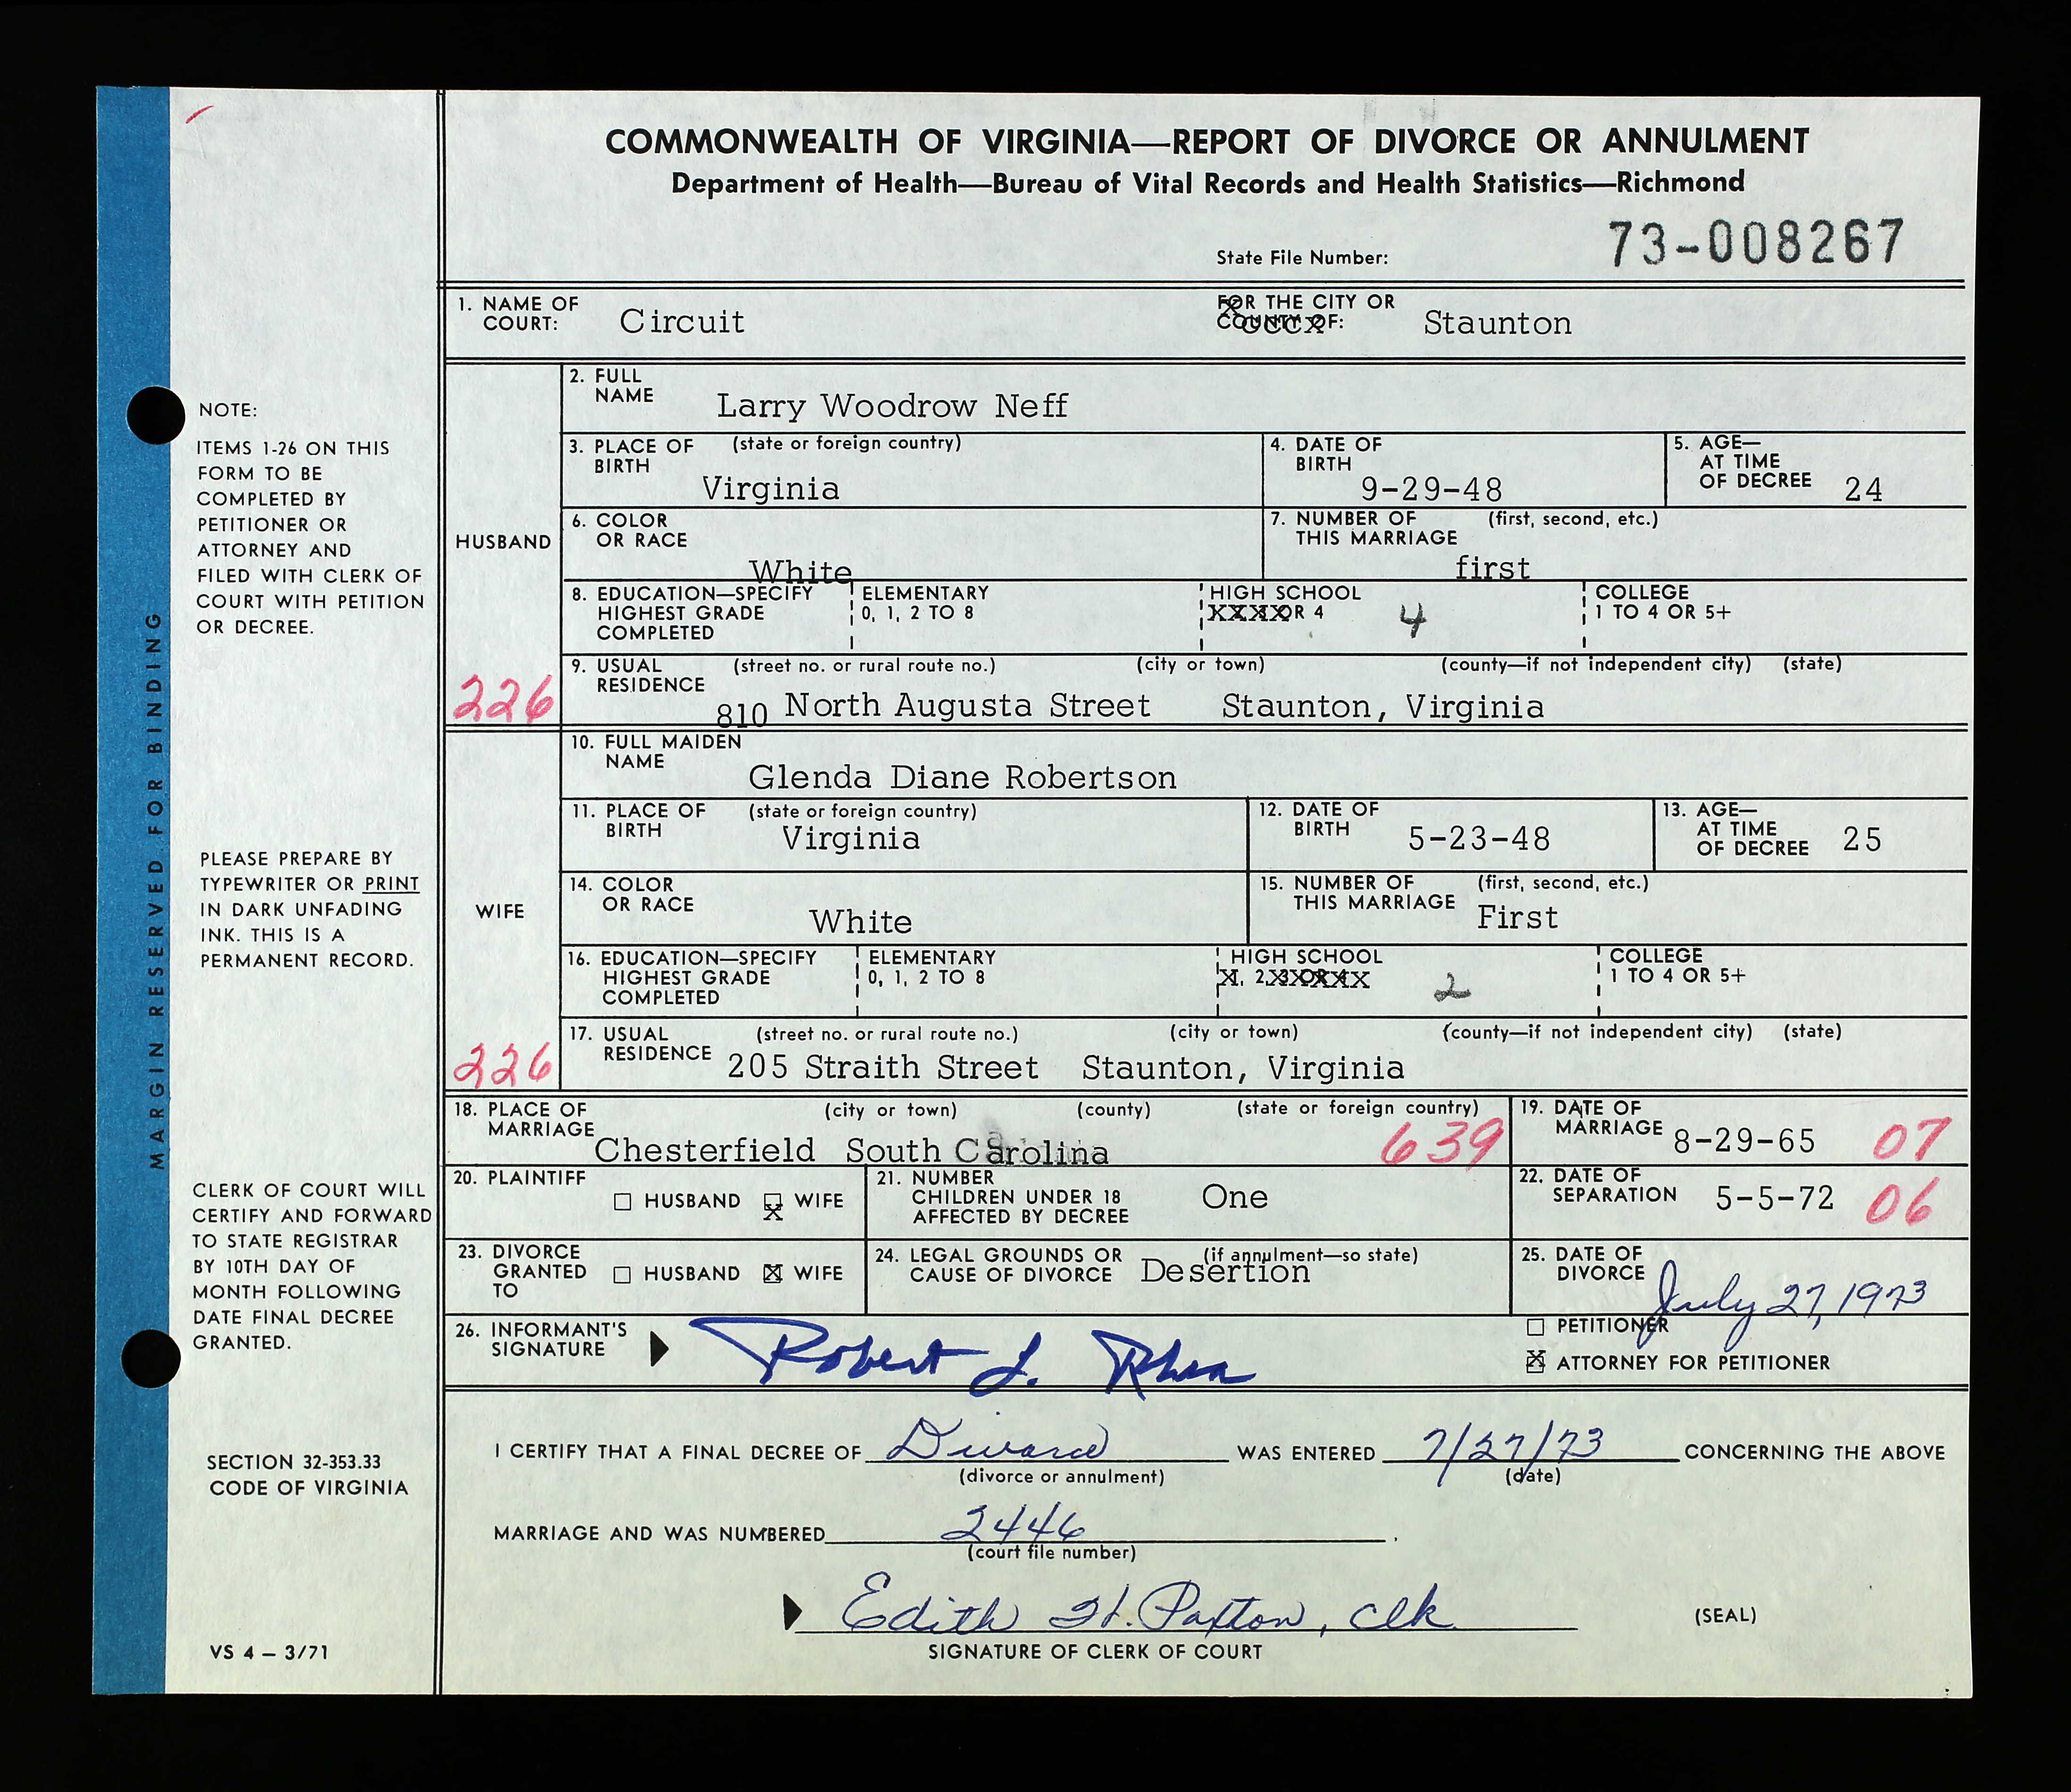 COMMONWEALTH OF VIRGINIA—REPORT OF DIVORCE OR ANNULMENT
Department of Health—Bureau of Vital Records and Health Statistics—Richmond
State File Number: 73-008267
1. NAME OF COURT: Circuit FOR THE CITY OR COUNTY OF: Staunton
HUSBAND
2. FULL NAME Larry Woodrow Neff
3. PLACE OF BIRTH (state or foreign country) Virginia
4. DATE OF BIRTH 9-29-48
5. AGE—AT TIME OF DECREE 24
6. COLOR OR RACE White
7. NUMBER OF THIS MARRIAGE (first, second, etc.) first
8. EDUCATION—SPECIFY HIGHEST GRADE COMPLETED
ELEMENTARY 0, 1, 2 TO 8
HIGH SCHOOL XXXX OR 4 4
COLLEGE 1 TO 4 OR 5+
9. USUAL RESIDENCE (street no. or rural route no.) (city or town) (county—if not independent city) (state)
226 810 North Augusta Street Staunton, Virginia
WIFE
10. FULL MAIDEN NAME Glenda Diane Robertson
11. PLACE OF BIRTH (state or foreign country) Virginia
12. DATE OF BIRTH 5-23-48
13. AGE—AT TIME OF DECREE 25
14. COLOR OR RACE White
15. NUMBER OF THIS MARRIAGE (first, second, etc.) First
16. EDUCATION—SPECIFY HIGHEST GRADE COMPLETED
ELEMENTARY 0, 1, 2 TO 8
HIGH SCHOOL 2 2
COLLEGE 1 TO 4 OR 5+
17. USUAL RESIDENCE (street no. or rural route no.) (city or town) (county—if not independent city) (state)
226 205 Straith Street Staunton, Virginia
18. PLACE OF MARRIAGE (city or town) (county) (state or foreign country)
Chesterfield South Carolina 639
19. DATE OF MARRIAGE 8-29-65 07
20. PLAINTIFF ☐ HUSBAND ☒ WIFE
21. NUMBER CHILDREN UNDER 18 AFFECTED BY DECREE One
22. DATE OF SEPARATION 5-5-72 06
23. DIVORCE GRANTED TO ☐ HUSBAND ☒ WIFE
24. LEGAL GROUNDS OR CAUSE OF DIVORCE (if annulment—so state) Desertion
25. DATE OF DIVORCE July 27, 1973
26. INFORMANT'S SIGNATURE Robert L. Rhea
☐ PETITIONER
☒ ATTORNEY FOR PETITIONER
I CERTIFY THAT A FINAL DECREE OF Divorce WAS ENTERED 7/27/73 CONCERNING THE ABOVE
(divorce or annulment) (date)
MARRIAGE AND WAS NUMBERED 2446.
(court file number)
Edith H. Paxton, Clk
SIGNATURE OF CLERK OF COURT
(SEAL)
MARGIN RESERVED FOR BINDING
NOTE:
ITEMS 1-26 ON THIS
FORM TO BE
COMPLETED BY
PETITIONER OR
ATTORNEY AND
FILED WITH CLERK OF
COURT WITH PETITION
OR DECREE.
PLEASE PREPARE BY
TYPEWRITER OR PRINT
IN DARK UNFADING
INK. THIS IS A
PERMANENT RECORD.
CLERK OF COURT WILL
CERTIFY AND FORWARD
TO STATE REGISTRAR
BY 10TH DAY OF
MONTH FOLLOWING
DATE FINAL DECREE
GRANTED.
SECTION 32-353.33
CODE OF VIRGINIA
VS 4 – 3/71